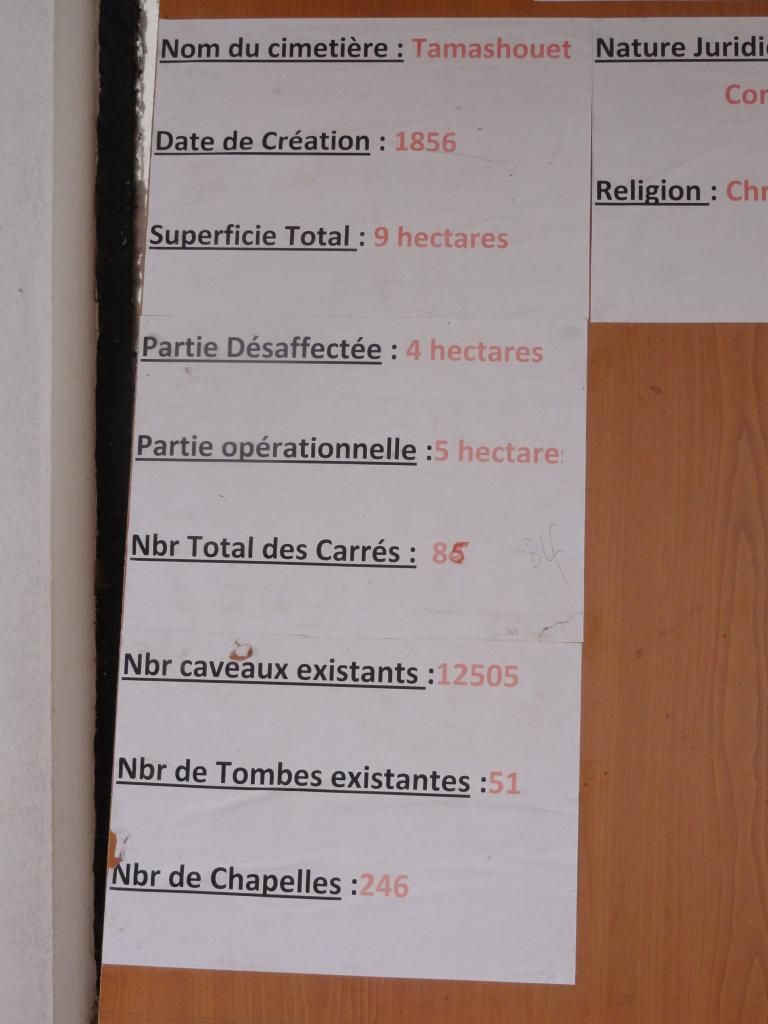 Nom du cimetière : Tamashouet
Date de Création : 1856
Superficie Total : 9 hectares
Partie Désaffectée : 4 hectares
Partie opérationnelle :5 hectares
Nbr Total des Carrés : 85
84
Nbr caveaux existants :12505
Nbr de Tombes existantes :51
Nbr de Chapelles :246
Nature Juridi
Cor
Religion : Chr